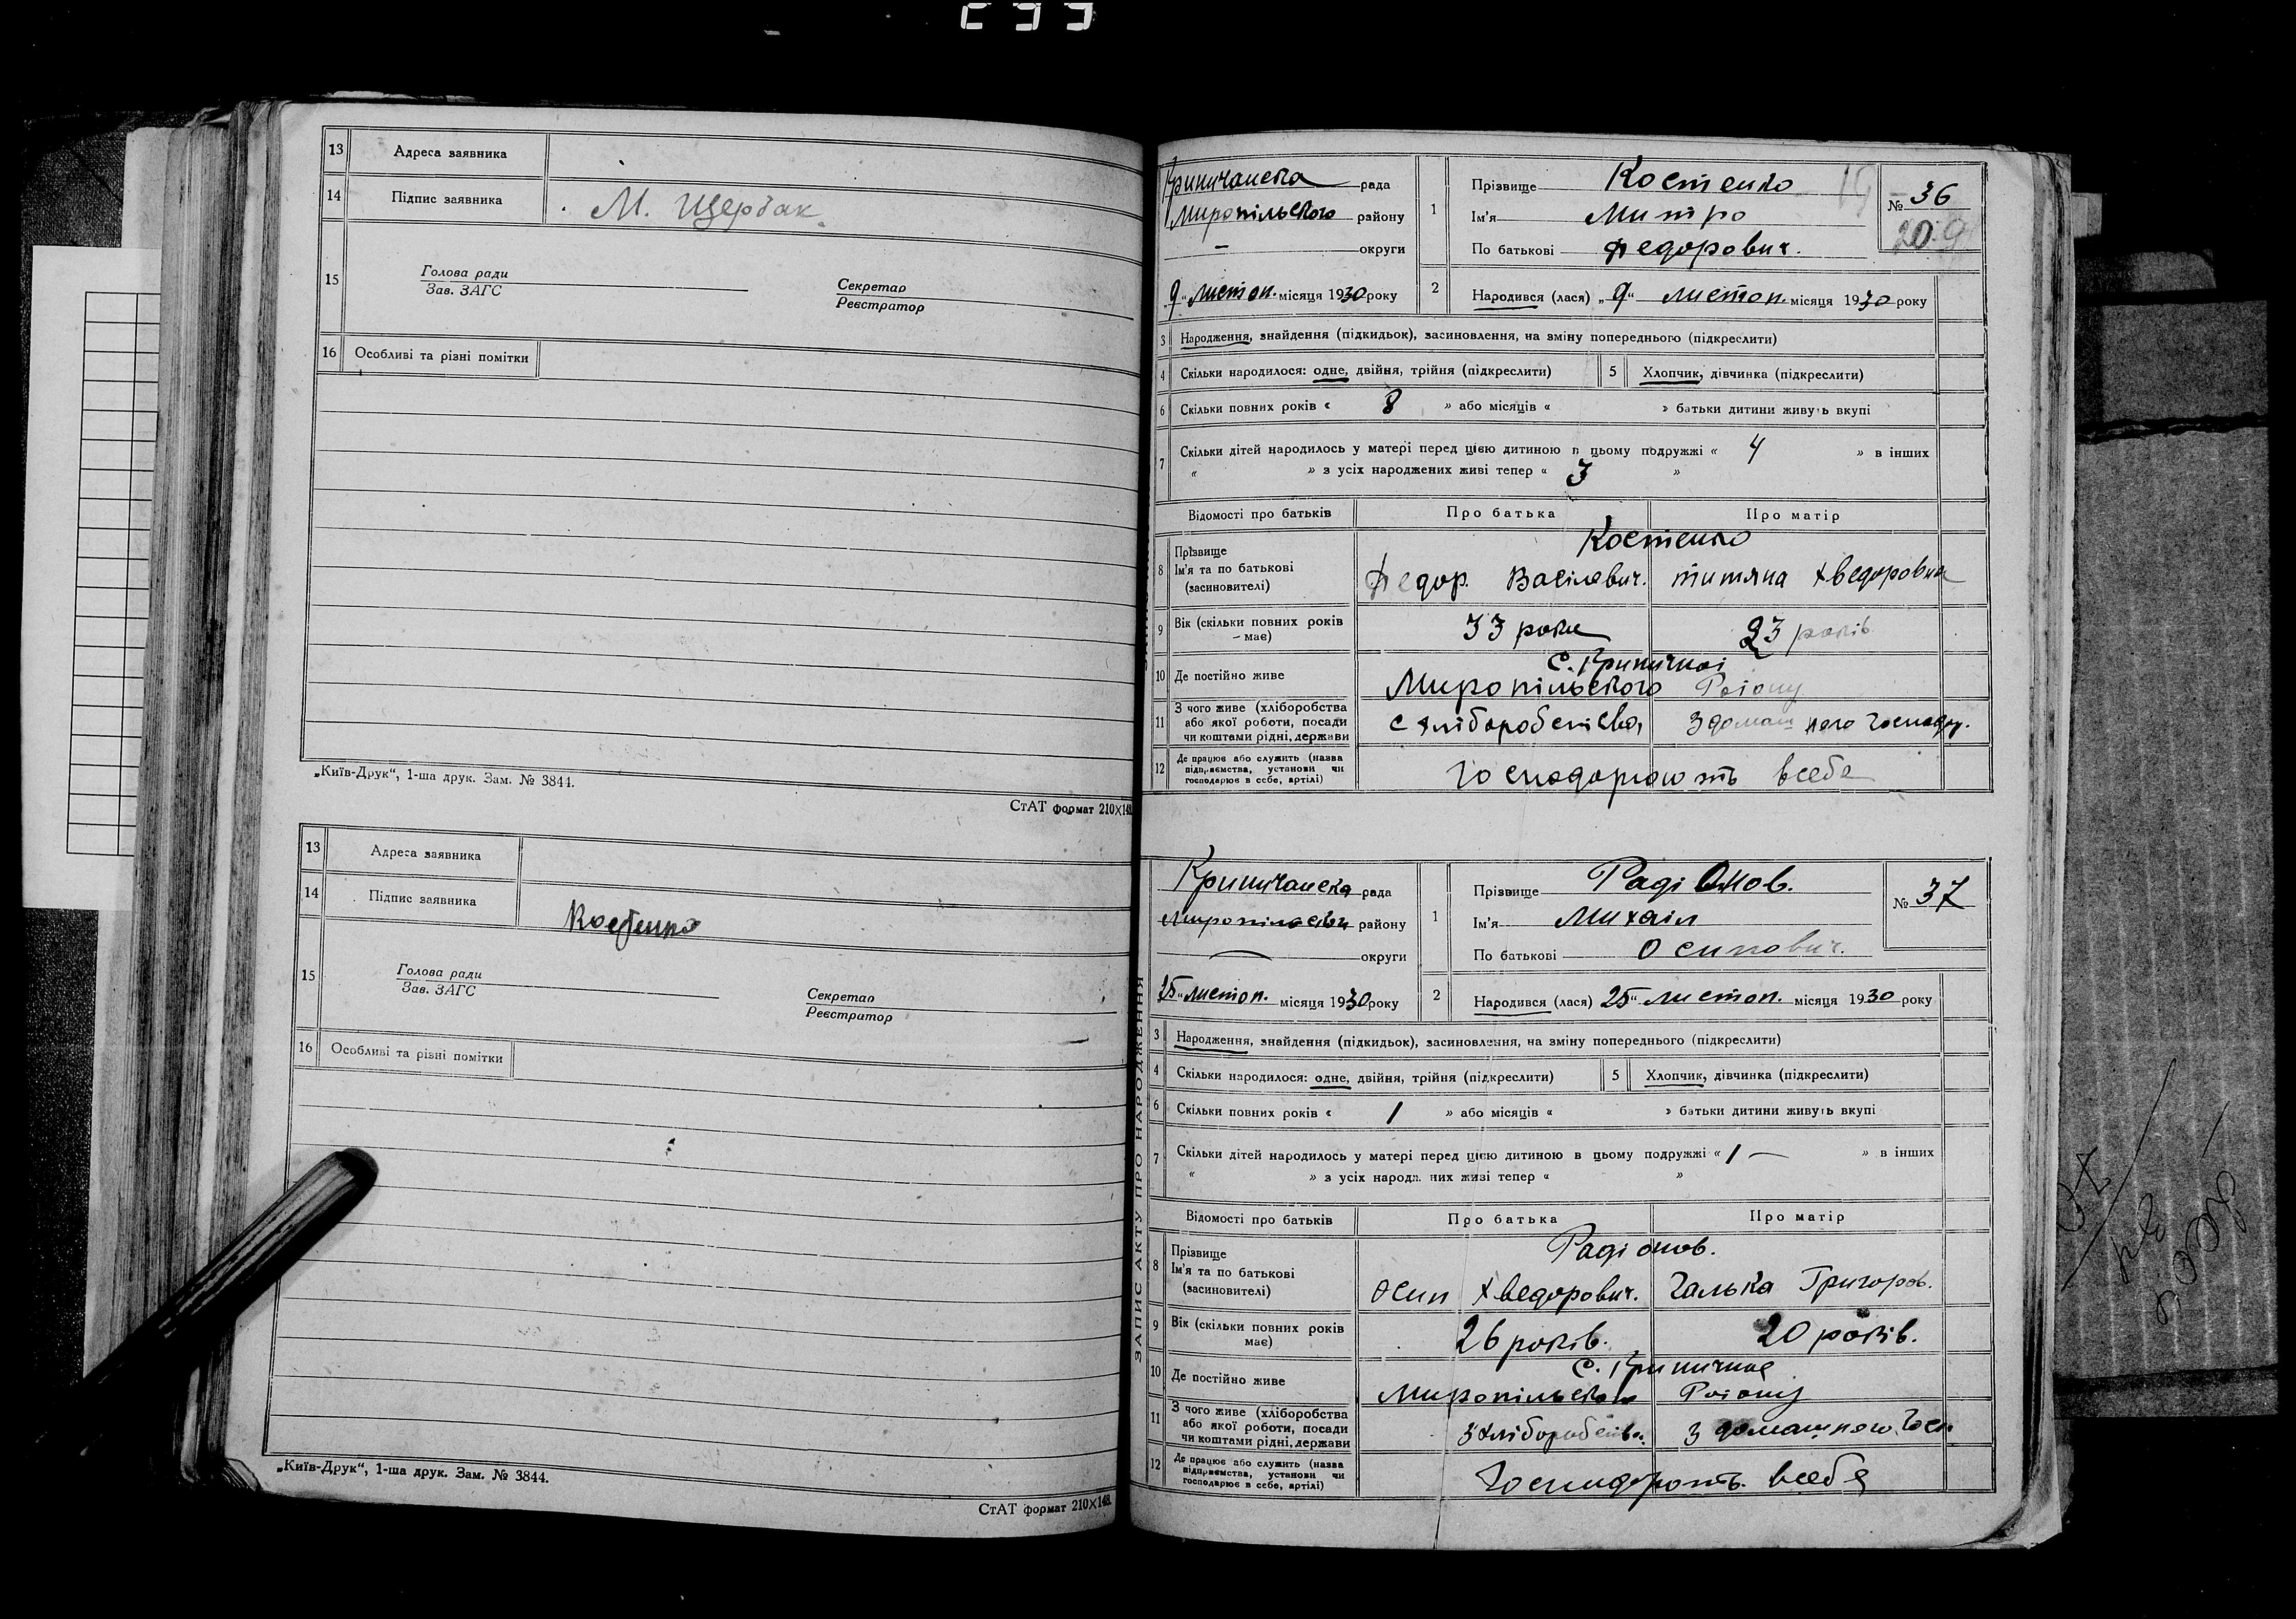 13 Адреса заявника
14 Підпис заявника М. Щербак
15 Голова ради
Зав. ЗАГС
Секретар
Реєстратор
16 Особливі та різні помітки
„Київ-Друк“, 1-ша друк. Зам. № 3844.
СтАТ формат 210×148.
13 Адреса заявника
14 Підпис заявника Костенко
15 Голова ради
Зав. ЗАГС
Секретар
Реєстратор
16 Особливі та різні помітки
„Київ-Друк“, 1-ша друк. Зам. № 3844.
СтАТ формат 210×148.
Криничанска рада
Миропільского району
— округи
„9“ листоп. місяця 1930 року
1 Прізвище Костенко
Ім'я Митро
По батькові Федорович.
№ 36
2 Народився (лася) „9“ листоп. місяця 1930 року
3 Народження, знайдення (підкидьок), засиновлення, на зміну попереднього (підкреслити)
4 Скільки народилося: одне, двійня, трійня (підкреслити) 5 Хлопчик, дівчинка (підкреслити)
6 Скільки повних років « 8 » або місяців « » батьки дитини живуть вкупі
7 Скільки дітей народилось у матері перед цією дитиною в цьому подружжі « 4 » в інших
« » з усіх народжених живі тепер « 3 »
Відомості про батьків Про батька Про матір
8 Прізвище
Ім'я та по батькові
(засиновителі)
Костенко
Федор. Васілевич. Титяна Хведоровна
9 Вік (скільки повних років має) 33 роки 23 років
10 Де постійно живе с. Криничної
Миропільского Району
11 З чого живе (хліборобства
або якої роботи, посади
чи коштами рідні, держави
с хліборобства, З домашнего господар.
12 Де працює або служить (назва
підприємства, установи чи
господарює в себе, артілі)
Господарюють всебе
ЗАПИС АКТУ ПРО НАРОДЖЕННЯ
Криничанска рада
району
— округи
25“ листоп. місяця 1930 року
1 Прізвище Радіонов.
Ім'я Михаіл
По батькові Осипович.
№ 37
2 Народився (лася) 25“ листоп. місяця 1930 року
3 Народження, знайдення (підкидьок), засиновлення, на зміну попереднього (підкреслити)
4 Скільки народилося: одне, двійня, трійня (підкреслити) 5 Хлопчик, дівчинка (підкреслити)
6 Скільки повних років « 1 » або місяців « » батьки дитини живуть вкупі
7 Скільки дітей народилось у матері перед цією дитиною в цьому подружжі « 1 — » в інших
« » з усіх народжених живі тепер « »
Відомості про батьків Про батька Про матір
8 Прізвище
Ім'я та по батькові
(засиновителі)
Радіонов.
Осип Хведорович. Галька Григоров.
9 Вік (скільки повних років має) 26 років. 20 років.
10 Де постійно живе с. Криничне
Миропільского Району
11 З чого живе (хліборобства
або якої роботи, посади
чи коштами рідні, держави
З хліборобства. З домашнего Госп
12 Де працює або служить (назва
підприємства, установи чи
господарює в себе, артілі)
всебе